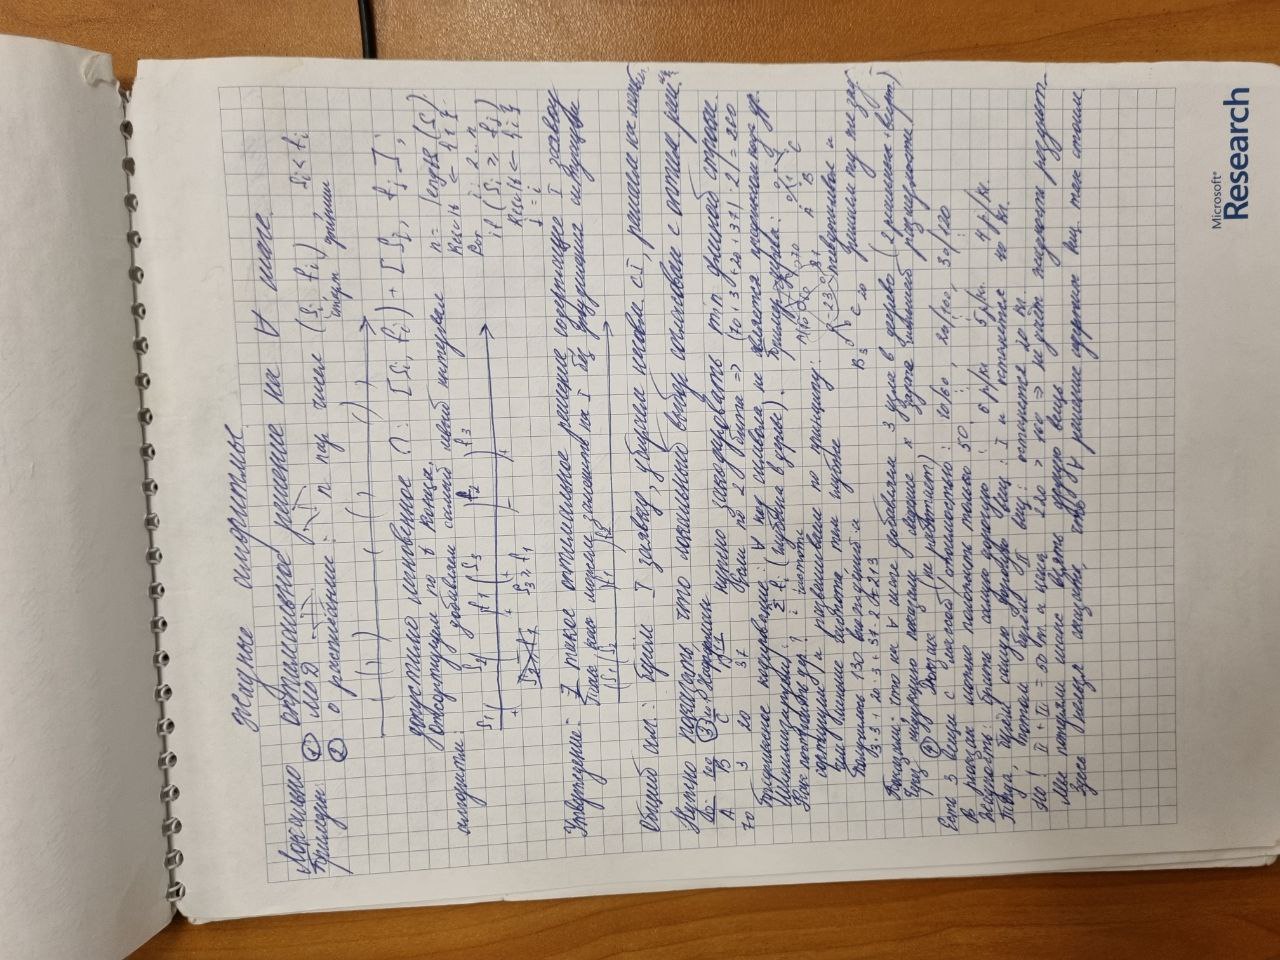 Жадные алгоритмы.
Локально оптимальное решение на ∀ шаге.
Примеры: ① МОД
② о расписании: n пар чисел (Si, fi), Si < fi
старт финиш
допустимо мгновенное ∩: [Si, fi) + [Sj, fj);
Отсортируем по t конца.
алгоритм: добавляем самый интервал
n = length (S)
Result ← {1}
For i: 2..n
if (Si ≥ fj)
Result ← {i}
j = i
S1 S2 f1 S3 f2 f3
S3 ≥ f1
Утверждение: ∃ такое оптимальное решение, содержащее I заявку
Так как можем заменить на I без ухудшения ситуации
S1 S2 f1 f2
Общий ал.: берём I заявку, убираем несовм. с I, решаем на
Нужно показать, что локальный выбор согласован с оптим. реш.
③ Хаффман
A B C
70 3 20 37
нужно закодировать min длиной строки.
Если по 2 бита => (70 + 3 + 20 + 37) · 2 = 260
Префиксное кодирование: ∀ код символа, не является префиксом кода др.
Минимизируем: Σ fi (глубина в дереве). Пример дерева:
i частота
A B C
Как построить дер.?
сортируем и развешиваем по принципу:
чем меньше частота, тем глубже
B3 C 20
псевдосимвол и
решаем ту же зад.
Получилось 130 вхождений и
3·3 + 20·3 + 37·2 213
Показали, что на ∀ шаге добавляем 3 узла в дерево (2 реальных + вирт.)
Через индукцию показали ведение к задаче меньшей размерности
④ Рюкзак (не работает)
Есть 3 вещи с массой/стоимостью: 10/60, 20/100, 30/120
В рюкзак можно положить только 50
Жадность: брать самую дорогую: 6 р/кг. 5 р/кг. 4 р/кг.
Тогда, берём самую дорогую вещ: I и останется 40 кг.
потом берём II вещ: останется 20 кг.
Но! II + III = 50 кг. а цена 220 > 160 => не даёт жадность результ.
Мы потеряли шанс взять другую вещь
Здесь нельзя сказать, что ∀ решение содержит вещ. так стоим.
Microsoft®
Research